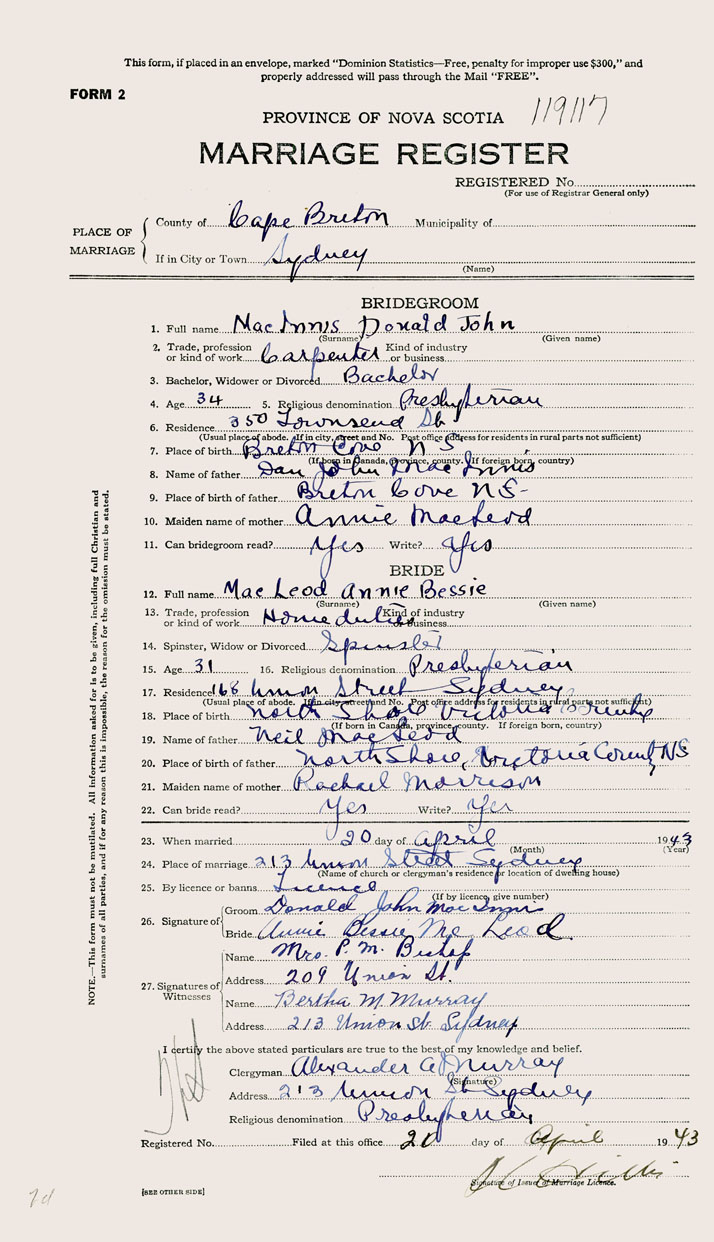 This form, if placed in an envelope, marked "Dominion Statistics—Free, penalty for improper use $300," and
properly addressed will pass through the Mail "FREE".
FORM 2
PROVINCE OF NOVA SCOTIA 119117
MARRIAGE REGISTER
REGISTERED No.
(For use of Registrar General only)
PLACE OF MARRIAGE
County of Cape Breton Municipality of
If in City or Town Sydney
(Name)
BRIDEGROOM
1. Full name MacInnis Donald John
(Surname) (Given name)
2. Trade, profession or kind of work Carpenter Kind of industry or business
3. Bachelor, Widower or Divorced Bachelor
4. Age 34 5. Religious denomination Presbyterian
6. Residence 350 Townsend St.
(Usual place of abode. If in city, street and No. Post office address for residents in rural parts not sufficient)
7. Place of birth Breton Cove N S
(If born in Canada, province, county. If foreign born, country)
8. Name of father Dan John MacInnis
9. Place of birth of father Breton Cove NS-
10. Maiden name of mother Annie MacLeod
11. Can bridegroom read? Yes Write? Yes
BRIDE
12. Full name MacLeod Annie Bessie
(Surname) (Given name)
13. Trade, profession or kind of work Home duties Kind of industry or business
14. Spinster, Widow or Divorced Spinster
15. Age 31 16. Religious denomination Presbyterian
17. Residence 168 Union Street Sydney
(Usual place of abode. If in city, street and No. Post office address for residents in rural parts not sufficient)
18. Place of birth North Shore Victoria County
(If born in Canada, province, county. If foreign born, country)
19. Name of father Neil MacLeod
20. Place of birth of father North Shore, Victoria County NS
21. Maiden name of mother Rachael Morrison
22. Can bride read? Yes Write? Yes
23. When married 20 day of April 1943
(Month) (Year)
24. Place of marriage 213 Union Street Sydney
(Name of church or clergyman's residence or location of dwelling house)
25. By licence or banns Licence
(If by licence, give number)
26. Signature of
Groom Donald John MacInnis
Bride Annie Bessie McLeod
27. Signatures of Witnesses
Name Mrs. P. M. Bishop
Address 209 Union St.
Name Bertha M. Murray
Address 213 Union St Sydney
I certify the above stated particulars are true to the best of my knowledge and belief.
Clergyman Alexander A Murray
(Signature)
Address 213 Union St Sydney
Religious denomination Presbyterian
Registered No. Filed at this office 20 day of April 1943
Signature of Issuer of Marriage Licence.
[SEE OTHER SIDE]
NOTE.—This form must not be mutilated. All information asked for is to be given, including full Christian and
surnames of all parties, and if for any reason this is impossible, the reason for the omission must be stated.